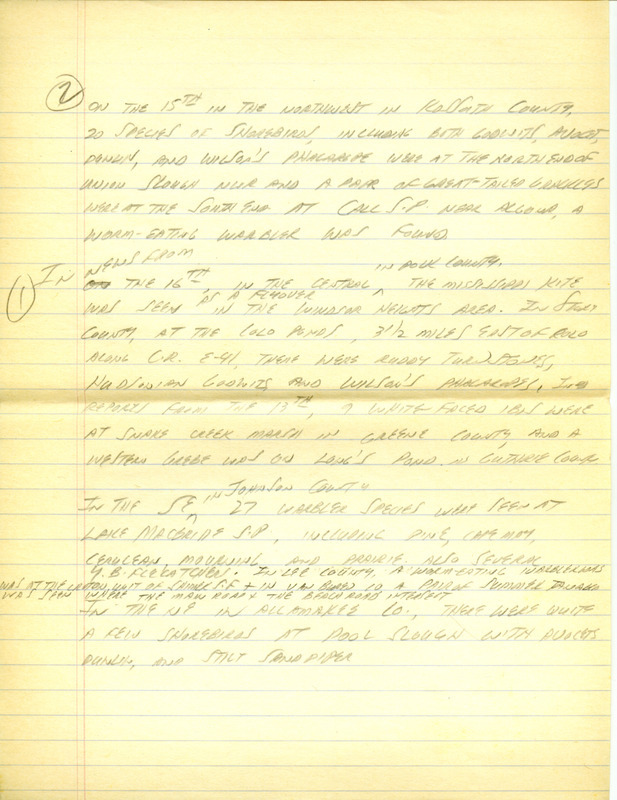 2 ON THE 15TH IN THE NORTHWEST IN KOSSUTH COUNTY,
20 SPECIES OF SHOREBIRDS, INCLUDING BOTH GODWITS, AVOCET,
DUNLIN, AND WILSON'S PHALAROPE WERE AT THE NORTH END OF
UNION SLOUGH NWR AND A PAIR OF GREAT-TAILED GRACKLES
WERE AT THE SOUTH END AT CALL S.P. NEAR ALGONA, A
WORM-EATING WARBLER WAS FOUND
IN NEWS FROM IN POLK COUNTY,
1 THE 16TH, IN THE CENTRAL THE MISSISSIPPI KITE
WAS SEEN AS A FLYOVER IN THE WINDSOR HEIGHTS AREA. IN STORY
COUNTY, AT THE COLO PONDS, 3 1/2 MILES EAST OF COLO
ALONG C.R. E-41, THERE WERE RUDDY TURNSTONES,
HUDSONIAN GODWITS, AND WILSON'S PHALAROPES. IN
REPORTS FROM THE 13TH, 9 WHITE-FACED IBIS WERE
AT SNAKE CREEK MARSH IN GREENE COUNTY, AND A
WESTERN GREBE WAS ON LONG'S POND IN GUTHRIE COUNTY
IN THE SE, IN JOHNSON COUNTY 27 WARBLER SPECIES WERE SEEN AT
LAKE MACBRIDE S.P., INCLUDING PINE, CAPE MAY,
CERULEAN, MOURNING AND PRAIRIE ALSO SEVERAL
Y.B. FLYCATCHER. IN LEE COUNTY, A WORM-EATING WARBLER WAS
WAS AT THE UNIT OF SHIMEK S.F. + IN VAN BUREN CO A PAIR OF SUMMER TANAGER
WAS SEEN WHERE THE MAIN ROAD + THE BEACH ROADS INTERSECT
IN THE NE IN ALLAMAKEE CO., THERE WERE QUITE
A FEW SHOREBIRDS AT POOL SLOUGH WITH AVOCETS
DUNLIN, AND STILT SANDPIPER